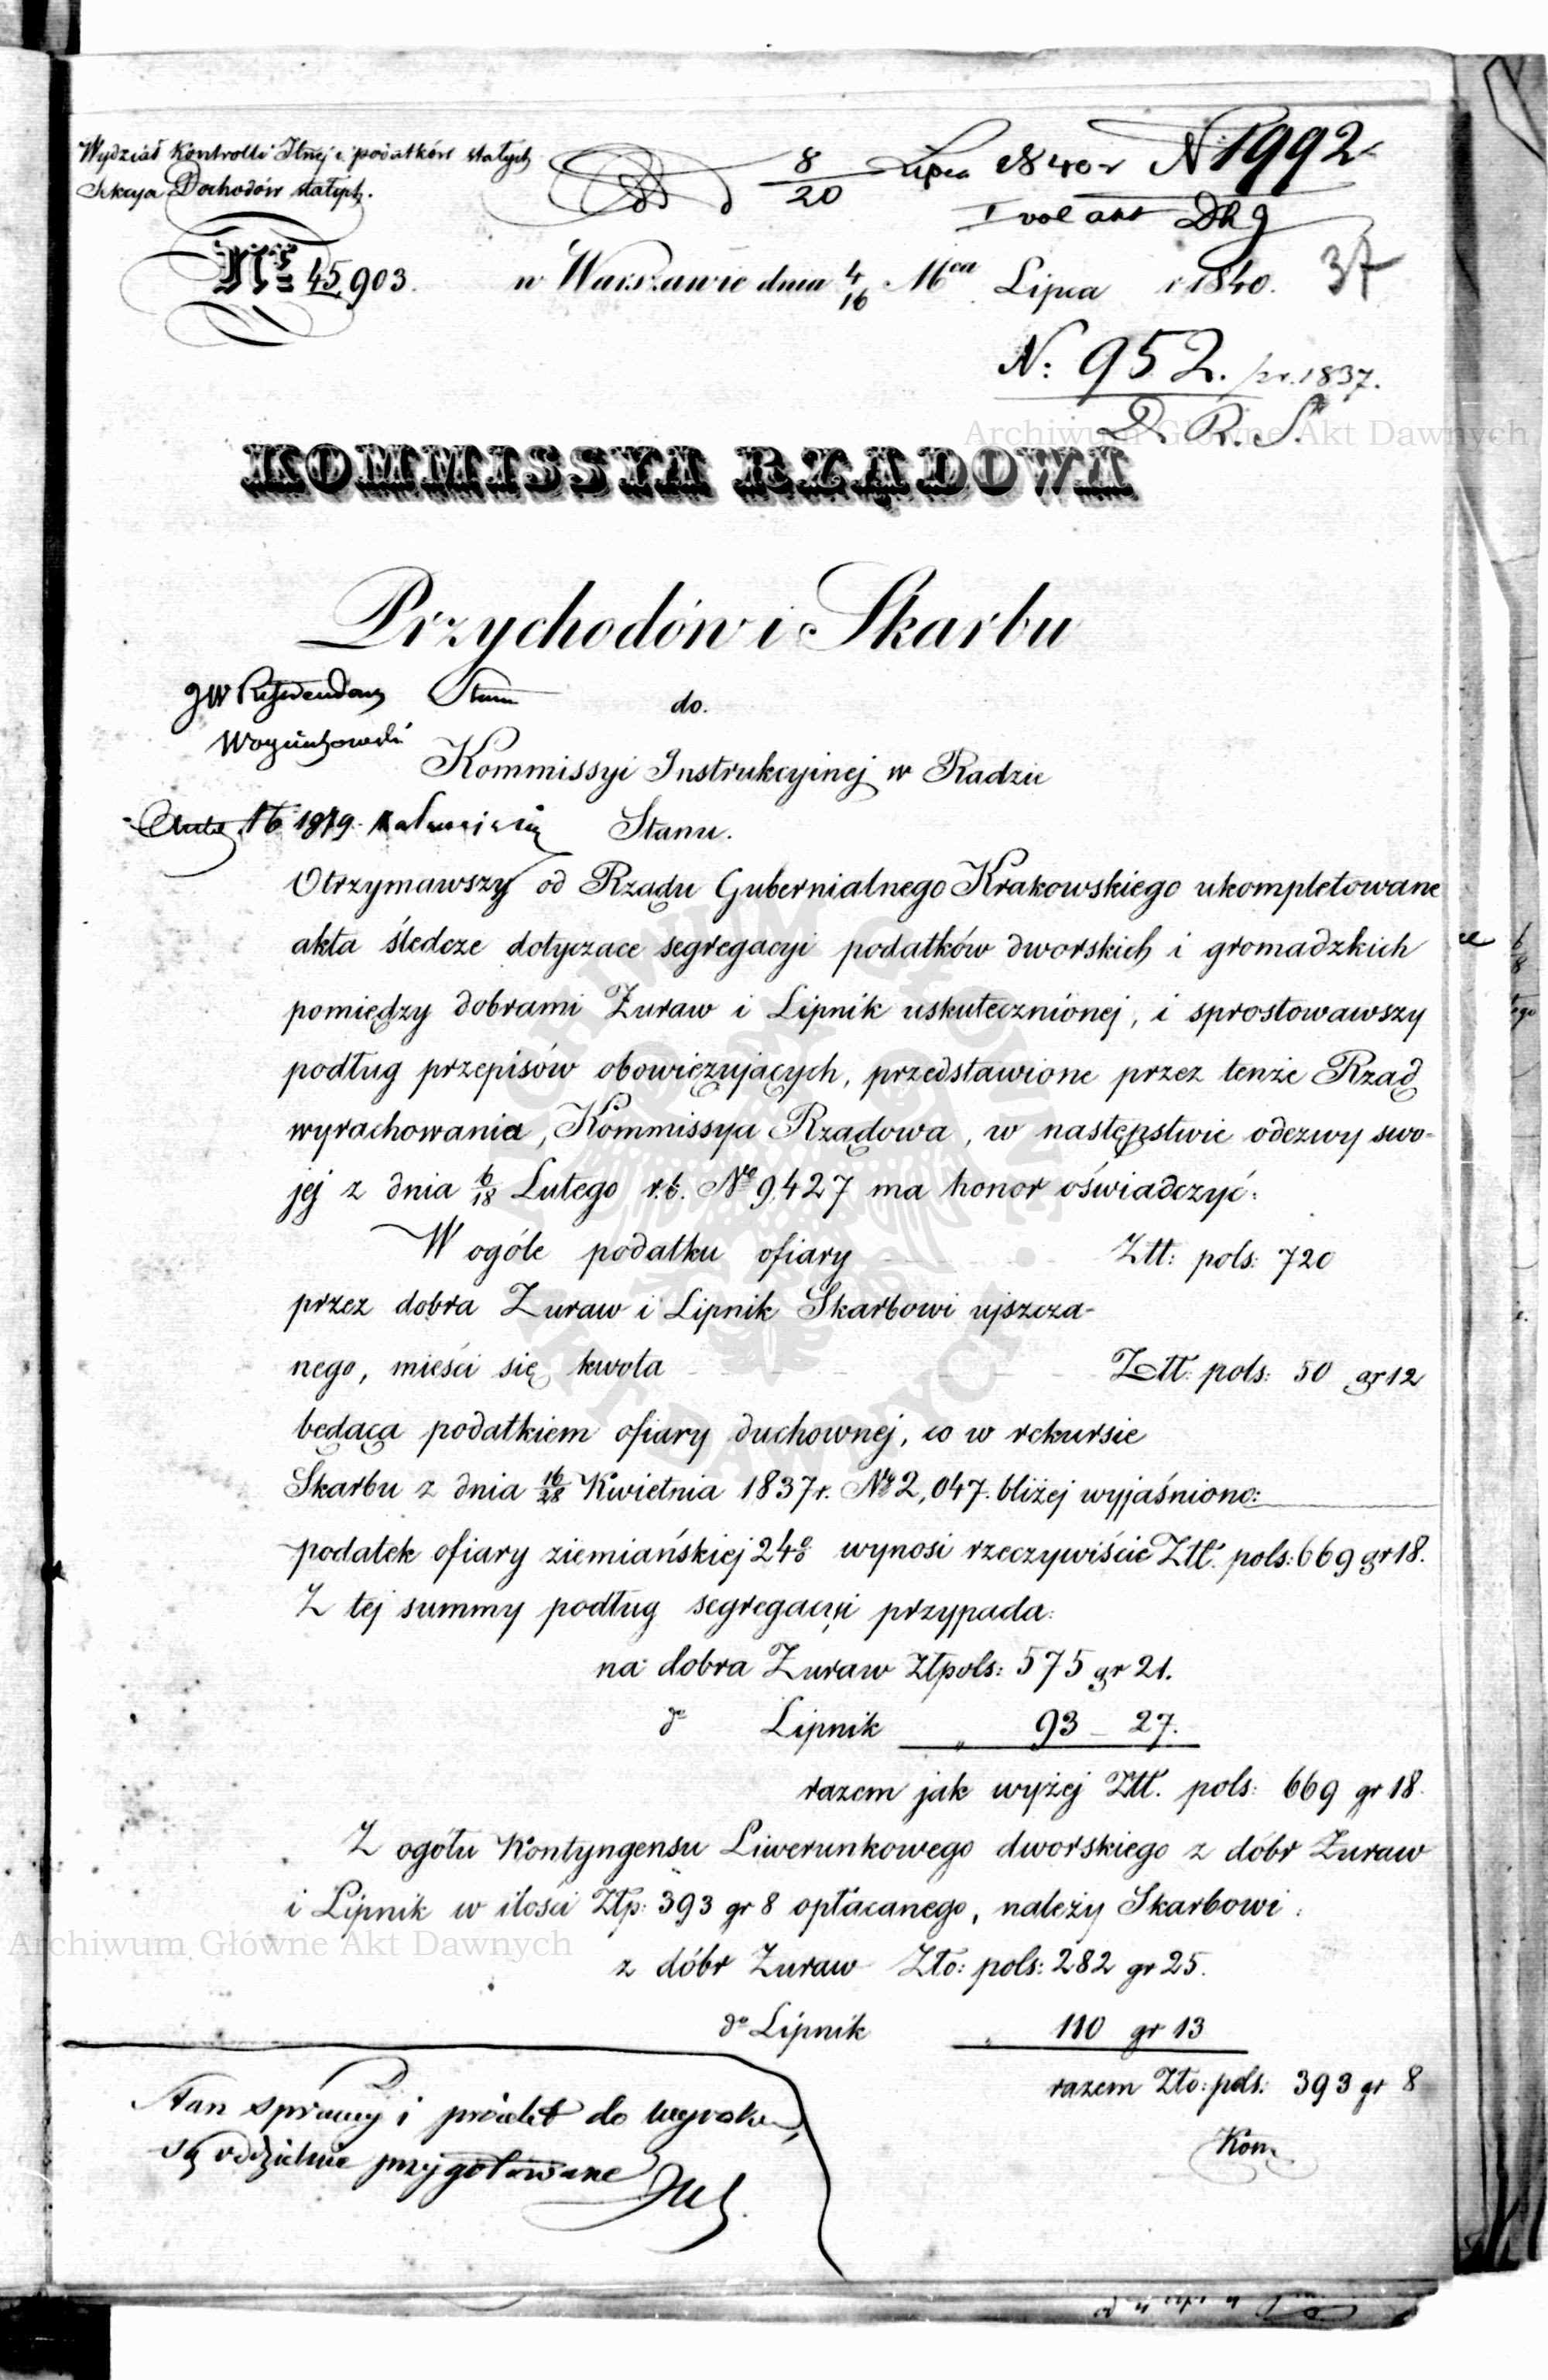 Wydział Kontrolli Jlnej i podatków stałych
Sekcya Dochodów stałych.
8/20 Lipca 1840 r N 1992
1 vol akt
№ 45,903.
w Warszawie dnia 4/16 Mca Lipca r 1840.
37
N: 952. pr. 1837.
D. R. S.
Archiwum Główne Akt Dawnych
KOMMISSYA RZĄDOWA
Przychodów i Skarbu
JW Referendarz Stanu
do.
Kommissyi Instrukcyjnej w Radzie
Stanu.
Otrzymawszy od Rządu Gubernialnego Krakowskiego ukompletowane
akta śledcze dotyczące segregacyi podatków dworskich i gromadzkich
pomiędzy dobrami Żuraw i Lipnik uskutecznionej, i sprostowawszy
podług przepisów obowięzujących, przedstawione przez tenże Rząd
wyrachowania, Kommissya Rządowa, w następstwie odezwy swo-
jej z dnia 6/18 Lutego r.b. No 9,427 ma honor oświadczyć:
W ogóle podatku ofiary Złł: pols: 720
przez dobra Żuraw i Lipnik Skarbowi ujszcza-
nego, mieści się kwota Złł: pols: 50 gr 12
będąca podatkiem ofiary duchownej, co w rekursie
Skarbu z dnia 16/28 Kwietnia 1837 r. No 2,047. bliżej wyjaśniono:
podatek ofiary ziemiańskiej 24% wynosi rzeczywiście Złł. pols: 669 gr 18.
Z tej summy podług segregacyi przypada:
na dobra Żuraw Złpols: 575 gr 21.
do Lipnik " 93 – 27.
razem jak wyżej Złł. pols: 669 gr 18.
Z ogółu Kontyngensu Liwerunkowego dworskiego z dóbr Żuraw
i Lipnik w ilości Złp: 393 gr 8 opłacanego, należy Skarbowi:
Archiwum Główne Akt Dawnych
z dóbr Żuraw Zło: pols: 282 gr 25.
do Lipnik " 110 gr 13
razem Zło: pols: 393 gr 8
Kom
Stan sprawy i projekt do wyroku,
są oddzielnie przygotowane